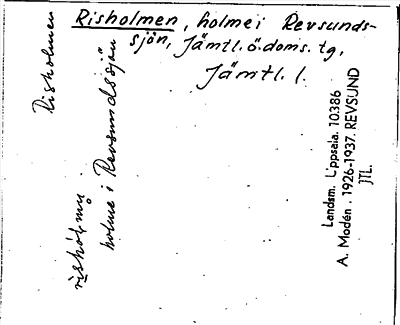 Risholmen, holme i Revsunds-
sjön, Jämtl. ö. doms. tg,
Jämtl. l.
Risholmen
holme i Revsundssjön
Landsm. Uppsala. 10386
A. Modén. 1926-1937. REVSUND
JTL.